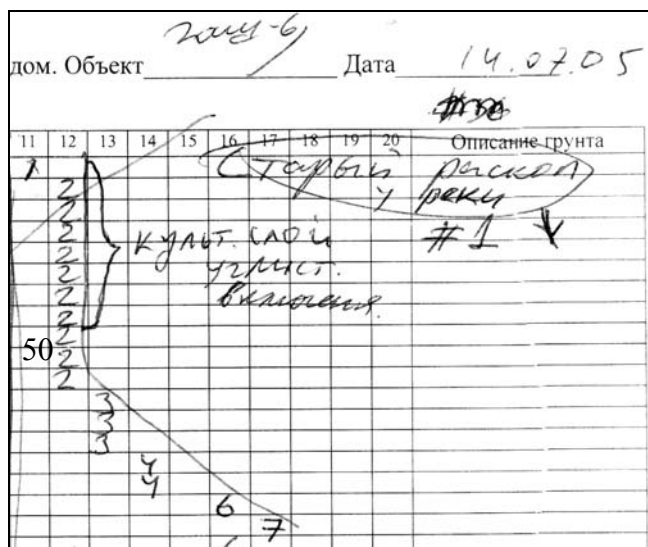 дом. Объект Дата 14.07.05
11 12 13 14 15 16 17 18 19 20 Описание грунта
1 Старый раскоп
2 у реки
2 #1
2 культ. слой
2 углист.
2 включения.
2
2
2
50 2
2
3
3
3
4
4
6
7